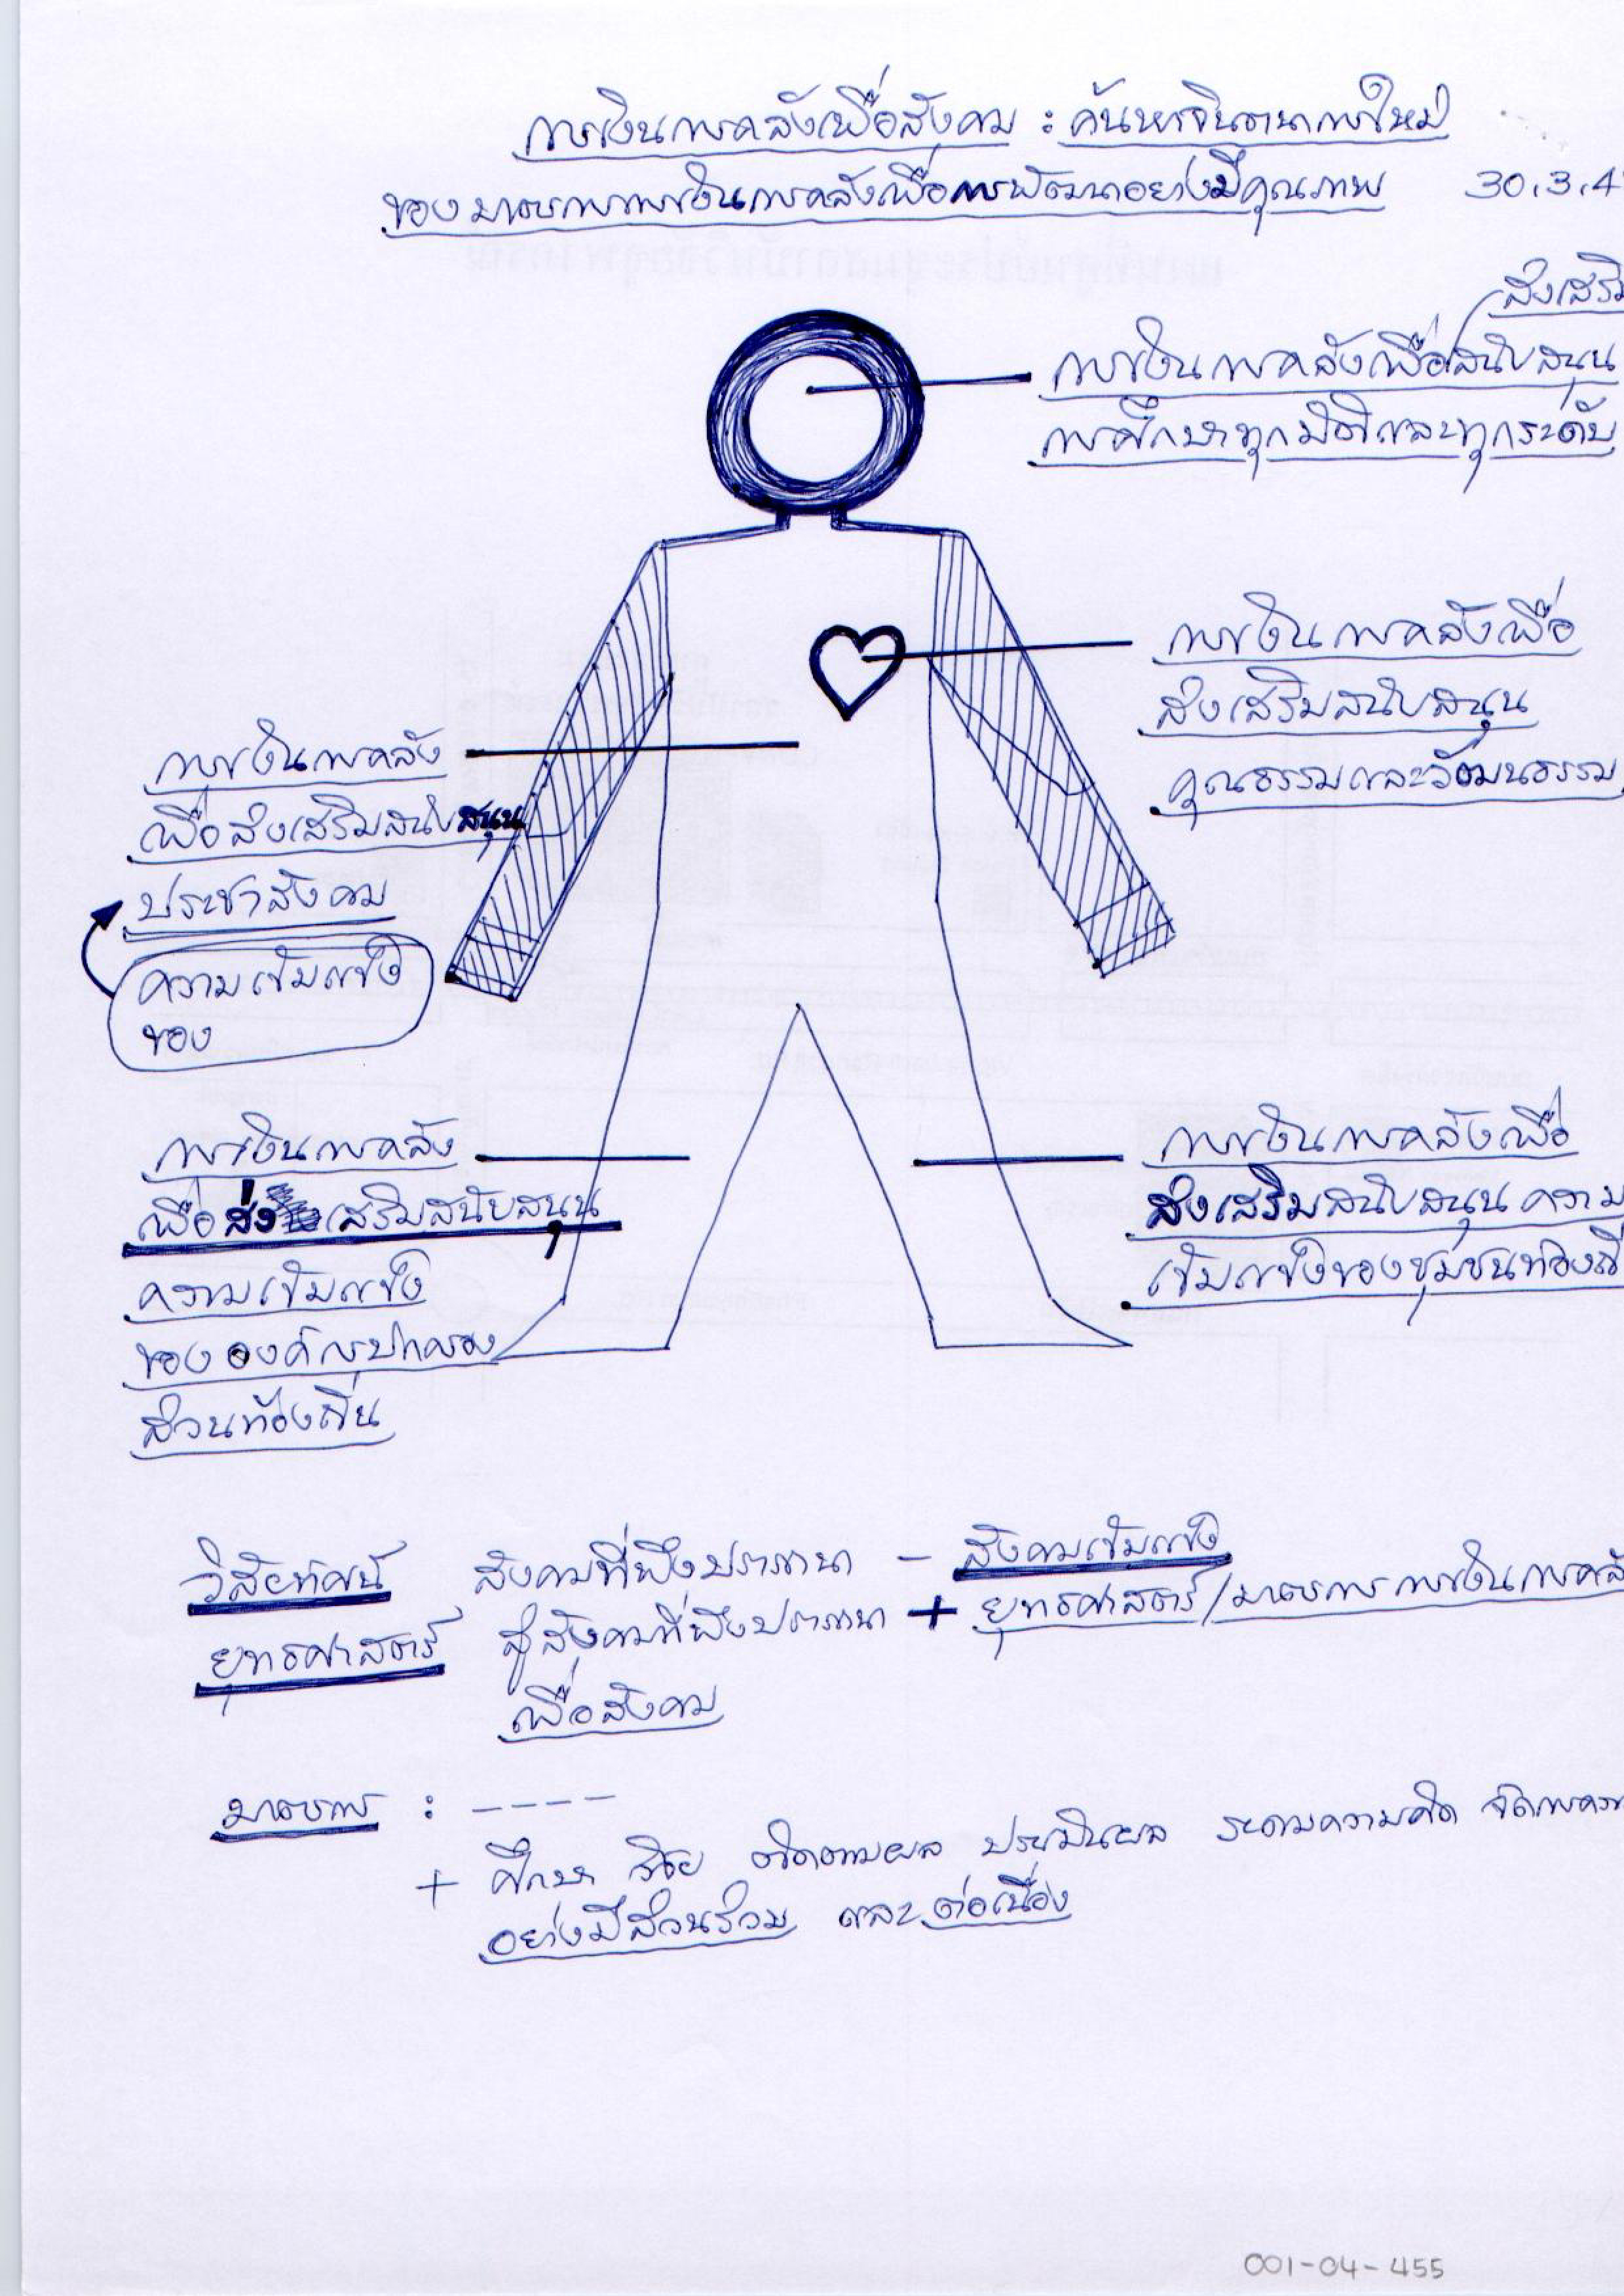 การเงินการคลังเพื่อสังคม : ค้นหาจินตนาการใหม่
ของมาตรการการเงินการคลังเพื่อการพัฒนาอย่างมีคุณภาพ 30.3.4
ส่งเสริม
การเงินการคลังเพื่อสนับสนุน
การศึกษาทุกมิติและทุกระดับ
การเงินการคลังเพื่อ
ส่งเสริมสนับสนุน
คุณธรรมและวัฒนธรรม
การเงินการคลัง
เพื่อส่งเสริมสนับสนุน
ประชาสังคม
ความเข้มแข็ง
ของ
การเงินการคลัง
เพื่อส่งเสริมสนับสนุน
ความเข้มแข็ง
ขององค์กรปกครอง
ส่วนท้องถิ่น
การเงินการคลังเพื่อ
ส่งเสริมสนับสนุนความ
เข้มแข็งของชุมชนท้องถิ่
วิสัยทัศน์ สังคมที่พึงปรารถนา - สังคมเข้มแข็ง
ยุทธศาสตร์ สู่สังคมที่พึงปรารถนา + ยุทธศาสตร์/มาตรการการเงินการคลั
เพื่อสังคม
มาตรการ : ----
+ ศึกษา วิจัย ติดตามผล ประเมินผล ระดมความคิด จัดการความ
อย่างมีส่วนร่วม และต่อเนื่อง
001-04-455